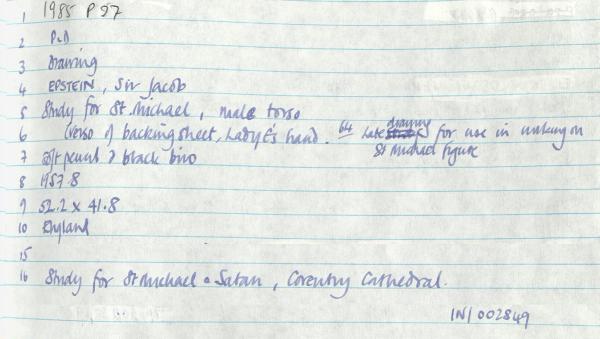 1 1985 P 27
2 P&D
3 Drawing
4 EPSTEIN, Sir Jacob
5 Study for St. Michael, male torso
6 (verso of backing sheet, Lady E's hand. 64 Late drawing for use in working on St Michael figure
7 soft pencil & black biro
8 1957.8
9 52.2 x 41.8
10 England
15
16 Study for St Michael & Satan, Coventry Cathedral.
IN/002849